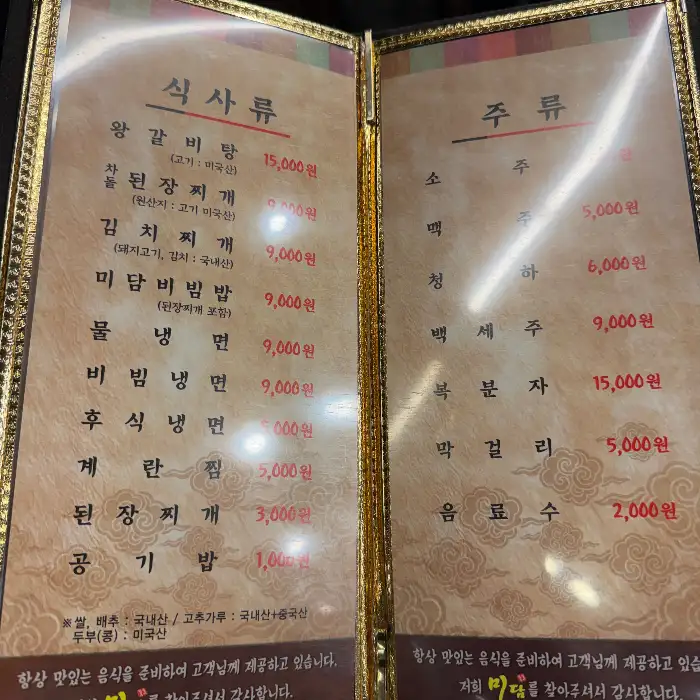 식사류
왕갈비탕 15,000원
(고기 : 미국산)
차돌 된장찌개 9,000원
(원산지 : 고기 미국산)
김치찌개 9,000원
(돼지고기, 김치 : 국내산)
미담비빔밥 9,000원
(된장찌개 포함)
물냉면 9,000원
비빔냉면 9,000원
후식냉면 5,000원
계란찜 5,000원
된장찌개 3,000원
공기밥 1,000원
※쌀, 배추 : 국내산 / 고추가루 : 국내산+중국산
두부(콩) : 미국산
항상 맛있는 음식을 준비하여 고객님께 제공하고 있습니다.
를 찾아주셔서 감사합니다.
주류
소주 원
맥주 5,000원
청하 6,000원
백세주 9,000원
복분자 15,000원
막걸리 5,000원
음료수 2,000원
항상 맛있는 음식을 준비하여 고객님께 제공하고 있습니다.
저희 미담를 찾아주셔서 감사합니다.